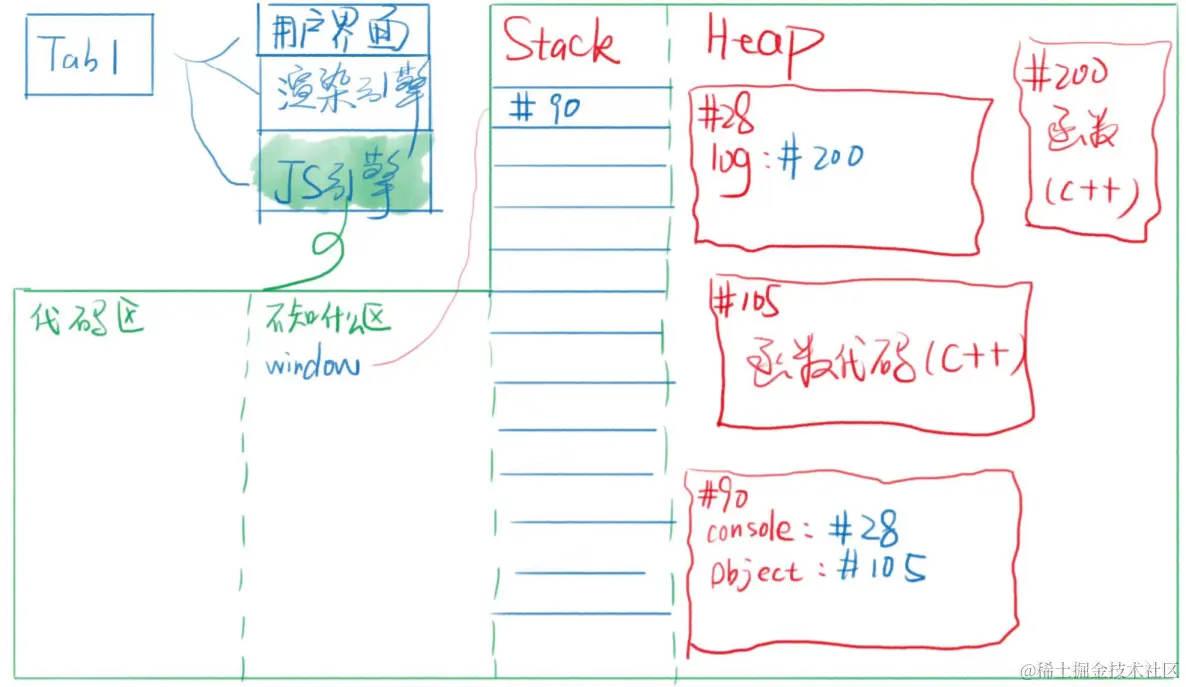 Tab1
用户界面
渲染引擎
JS引擎
代码区
不知什么区
window
Stack
#90
Heap
#28
log:#200
#200
函数
(C++)
#105
函数代码(C++)
#90
console:#28
Object:#105
@稀土掘金技术社区